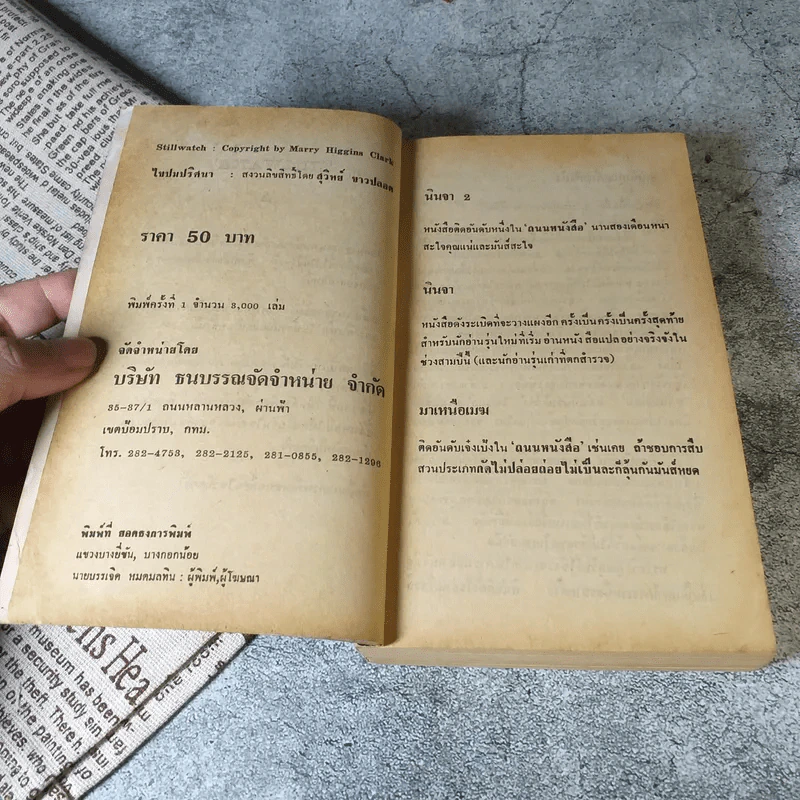 Stillwatch : Copyright by Marry Higgins Clark
ไขปมปริศนา : สงวนลิขสิทธิ์โดย สุวิทย์ ขาวปลอด
ราคา 50 บาท
พิมพ์ครั้งที่ 1 จำนวน 3,000 เล่ม
จัดจำหน่ายโดย
บริษัท ธนบรรณจัดจำหน่าย จำกัด
35-37/1 ถนนหลานหลวง, ผ่านฟ้า
เขตป้อมปราบ, กทม.
โทร. 282-4753, 282-2125, 281-0855, 282-1296
พิมพ์ที่ ยอดธงการพิมพ์
แขวงบางยี่ขัน, บางกอกน้อย
นายบรรเจิด หมดมลทิน : ผู้พิมพ์,ผู้โฆษณา
นินจา 2
หนังสือติดอันดับหนึ่งใน 'ถนนหนังสือ' นานสองเดือนหนา
สะใจคุณแน่และมันส์สะใจ
นินจา
หนังสือดังระเบิดที่จะวางแผงอีก ครั้งเป็น ครั้งเป็นครั้งสุดท้าย
สำหรับนักอ่านรุ่นใหม่ที่เริ่ม อ่านหนัง สือแปล อย่างจริงจังใน
ช่วงสามปีนี้ (และนักอ่านรุ่นเก่าที่ตกสำรวจ)
มาเหนือเมฆ
ติดอันดับเจ๋งเป้งใน 'ถนนหนังสือ' เช่นเคย ถ้าชอบการสืบ
สวนประเภทกัดไม่ปล่อยถ่อยไม่เป็นละก็ลุ้นกันมันส์หยด
museum has been
a security study sin
the theft. There h
the painting to